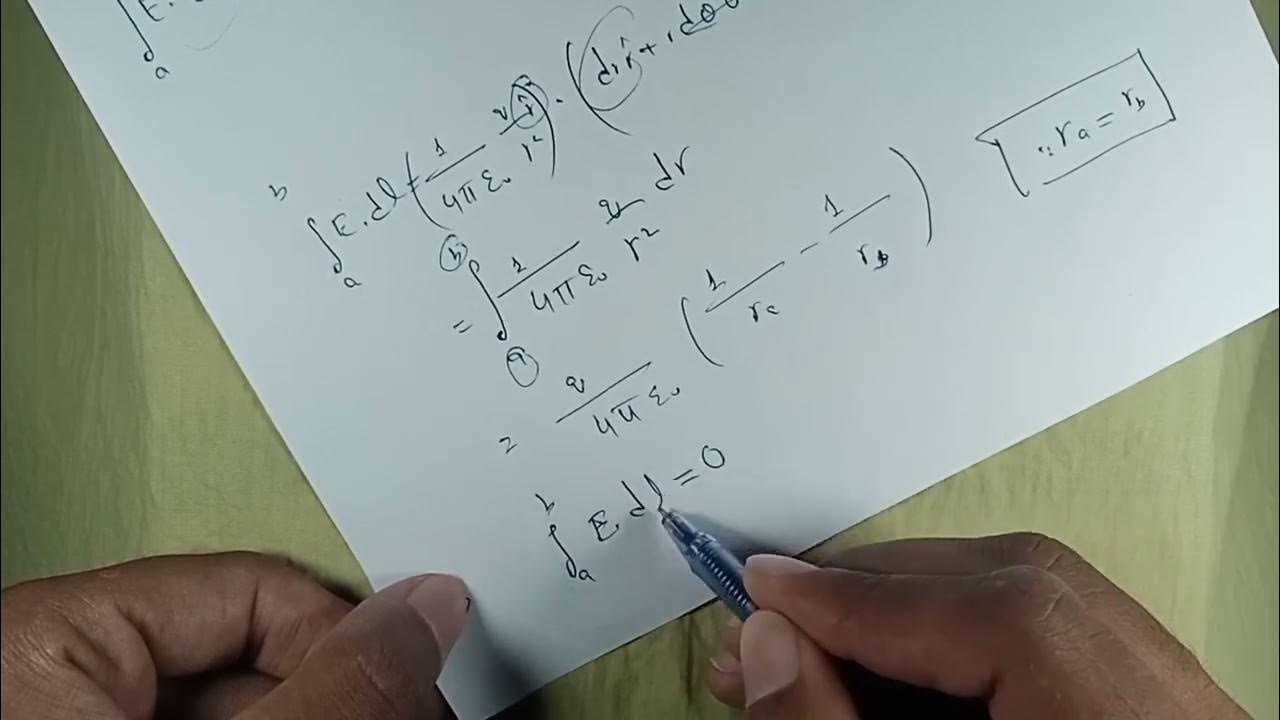 ∫ₐ E.
∫ₐᵇ E.dl = (1/4πε₀ q r̂/r²) . (dr r̂ + r dθ θ
= ∫ₐᵇ 1/4πε₀ q/r² dr
= q/4πε₀ (1/rₐ - 1/r_b)
∵ rₐ = r_b
∫ₐᵇ E.dl = 0